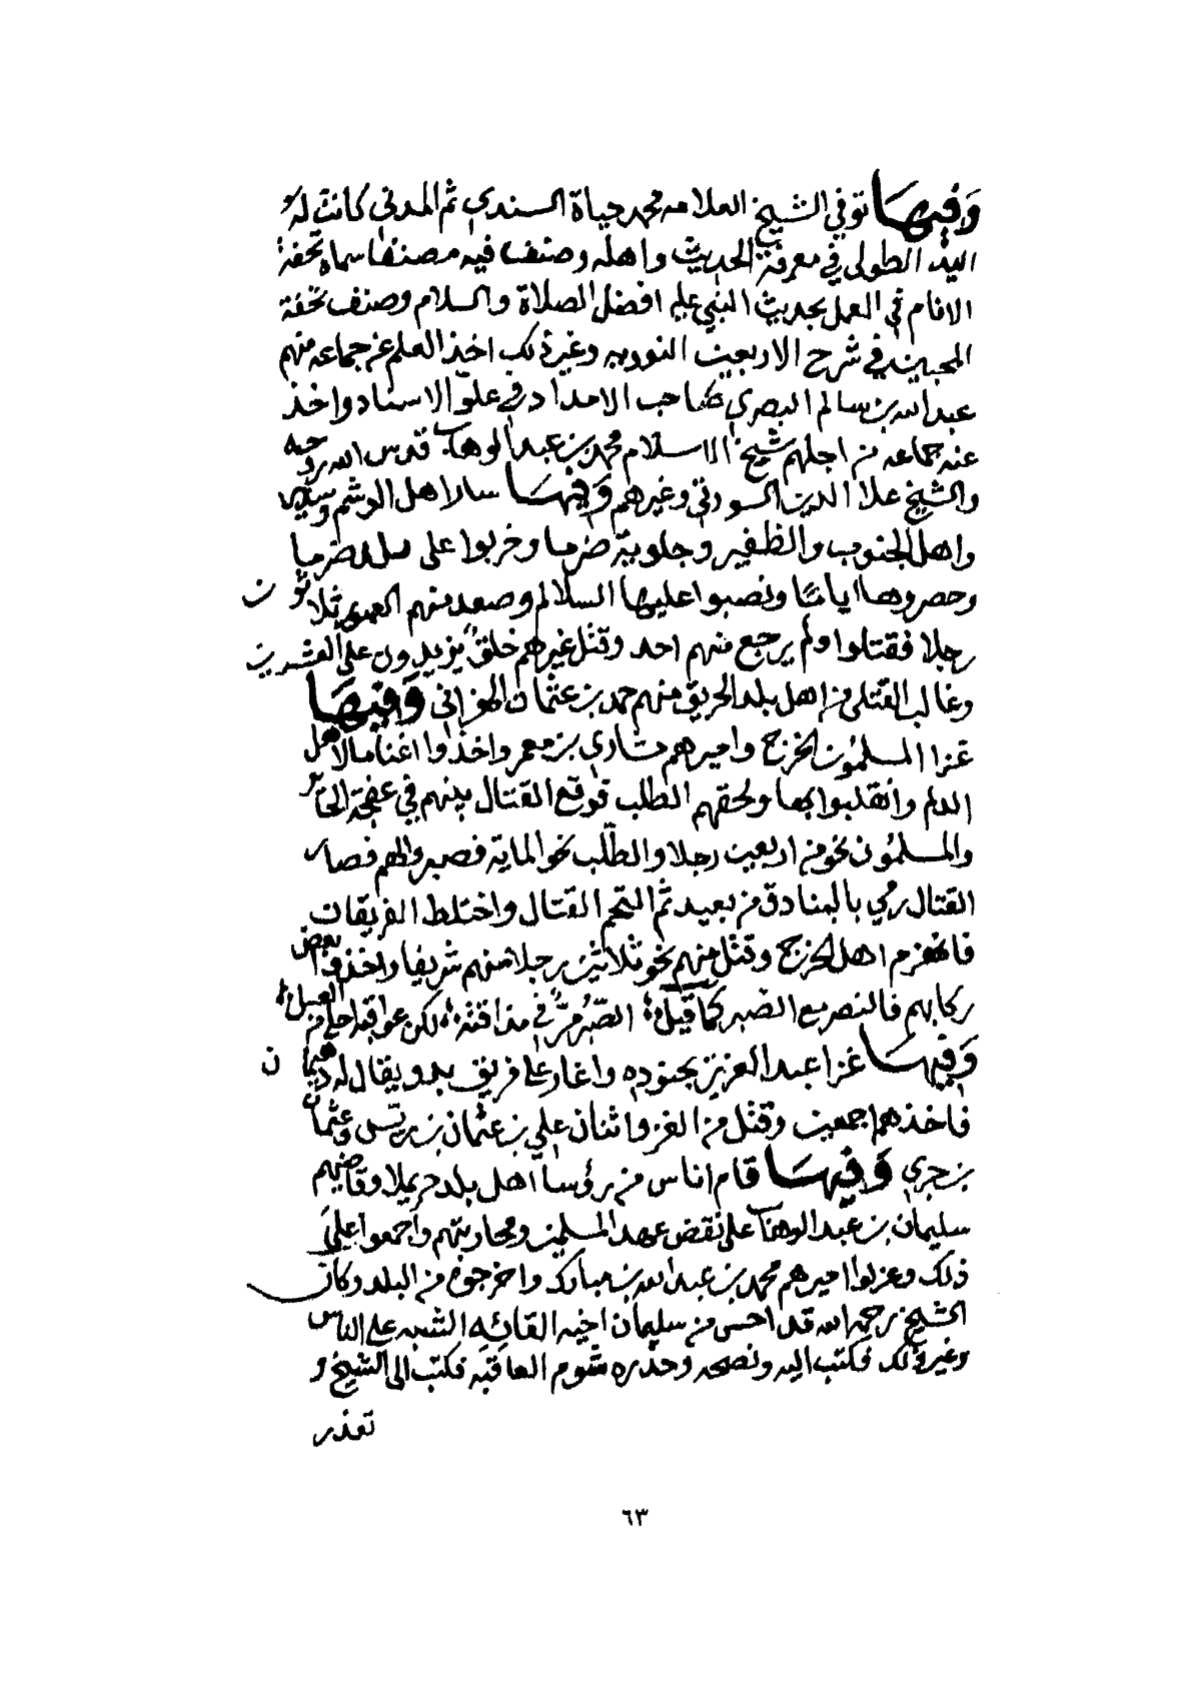 وَفِيهَا توفي الشيخ العلامه محمد حياة السندي ثم المدني كانت له
اليد الطولى في معرفة الحديث واهله وصنف فيه مصنفا سماه تحفة
الانام في العمل بحديث النبي عليه افضل الصلاة والسلام وصنف تحفة
المحبين في شرح الاربعين النوويه وغير ذلك اخذ العلم عن جماعه منهم
عبدالله بن سالم البصري صاحب الامداد في علوّ الاسناد واخذ
عنه جماعه من اجلهم شيخ الاسلام محمد بن عبدالوهاب قدس الله روحه
والشيخ علا الدين السورتي وغيرهم وَفِيهَا سارا اهل الوشم وسدير
واهل الجنوب والظفير وجلوية ضرما وخربوا على بلد ضرما
وحصروها اياما ونصبوا عليها السلالم وصعد منهم العدو ثلاثون
رجلا فقتلوا ولم يرجع منهم احد وقتل غيرهم خلقٌ يزيدون على العشرين
وغالب القتلى من اهل بلد الحريق منهم حمد بن عثمان الهزاني وَفِيهَا
غزا المسلمون الخرج واميرهم مشاري بن معمر واخذوا اغناما لاهل
الدلم وانقلبوا بها ولحقهم الطلب فوقع القتال بينهم في عفجة الحاير
والمسلمُون نحو من اربعين رجلا والطلب نحو الماية فصبروا لهم فصار
القتال رمي بالبنادق من بعيد ثم التحم القتال واختلط الفريقان
فانهزم اهل الخرج وقتل منهم نحو ثلاثين رجلا منهم شريفا واخذوا بعض
ركابهم فالنصر مع الصبر كما قيل؛ الصّبرُ مُرٌّ في مذاقته؛ لكن عواقبه احلى من العسل؛
وَفِيهَا غزا عبدالعزيز بجنوده واغار على فريق بدو يقال له دهيمان
فاخذهم اجمعين وقتل من الغزو اثنان علي بن عثمان بن ريّس وعثمان
بن جري وَفِيهَا قام اناس من رؤسا اهل بلد حريملا وقاضيهم
سليمان بن عبدالوهاب على نقض عهد المسلمين ومحاربتهم واجمعوا على
ذلك وعزلوا اميرهم محمد بن عبدالله بن مبارك واخرجوه من البلد وكان
الشيخ رحمه الله قد احس من سليمان اخيه القائه الشبه على الناس
وغير ذلك فكتب اليه ونصحه وحذره شوم العاقبه فكتب الى الشيخ و
تعذر
٦٣